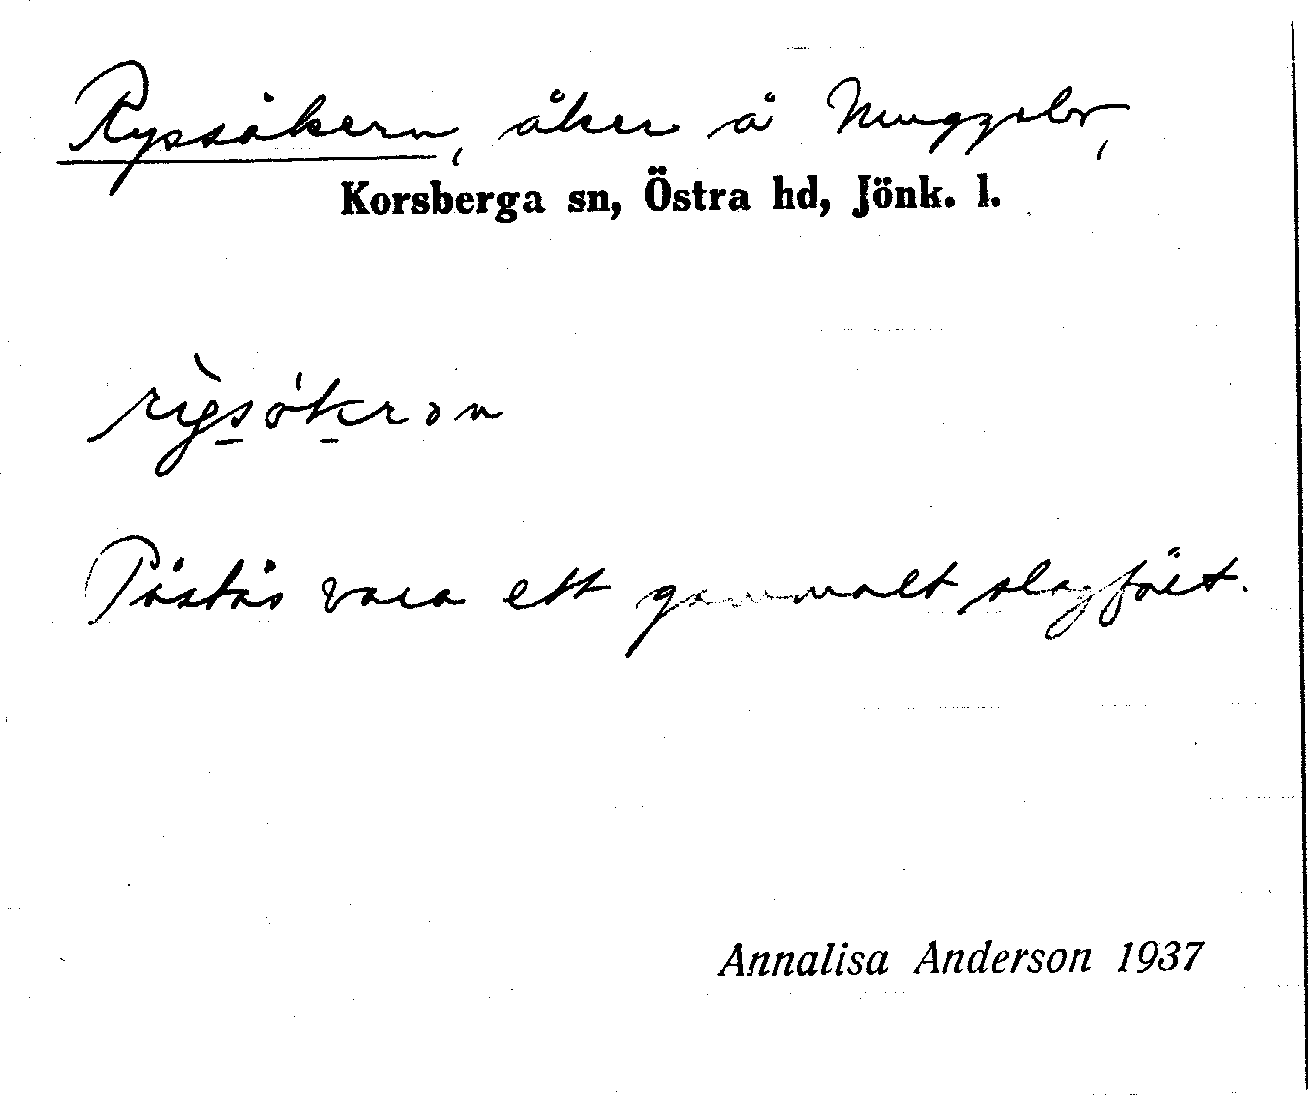 Rypsåkern, åker å Muggebo,
Korsberga sn, Östra hd, Jönk. l.
Påstås vara ett gammalt slagfält.
Annalisa Anderson 1937